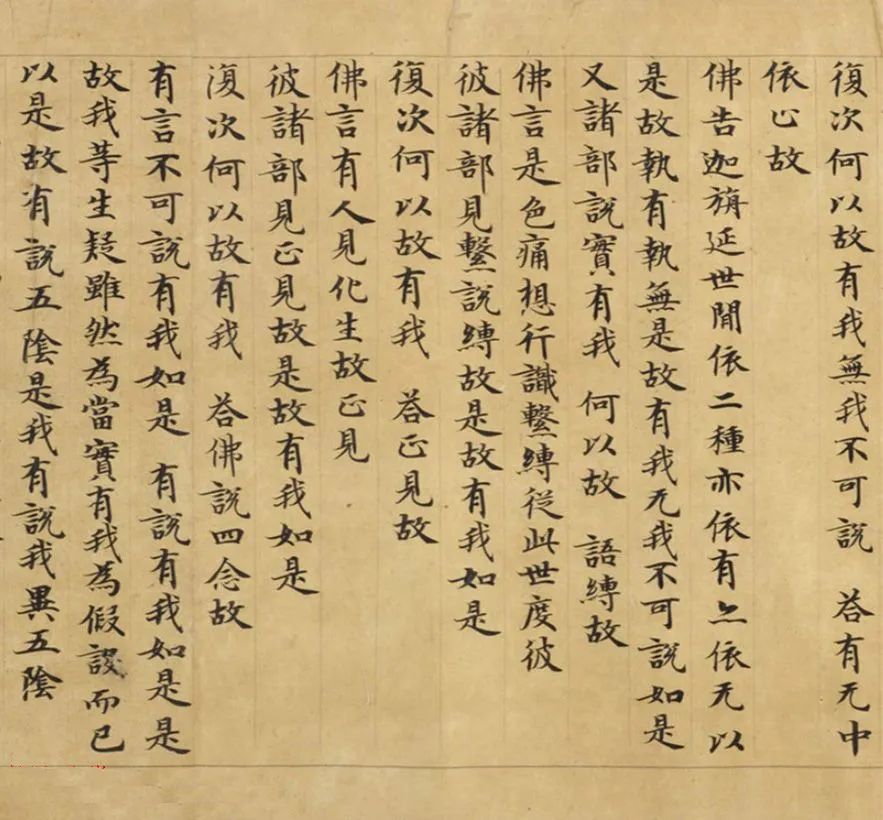 復次何以故有我無我不可說　荅有无中
依止故
佛告迦旃延世閒依二種亦依有亦依无以
是故執有執無是故有我无我不可說如是
又諸部說實有我　何以故　語縛故
佛言是色痛想行識繫縛從此世度彼
彼諸部見繫說縛故是故有我如是
復次何以故有我　荅正見故
佛言有人見化生故正見
彼諸部見正見故是故有我如是
復次何以故有我　荅佛說四念故
有言不可說有我如是　有說有我如是是
故我等生疑雖然為當實有我為假設而已
以是故有說五陰是我有說我異五陰